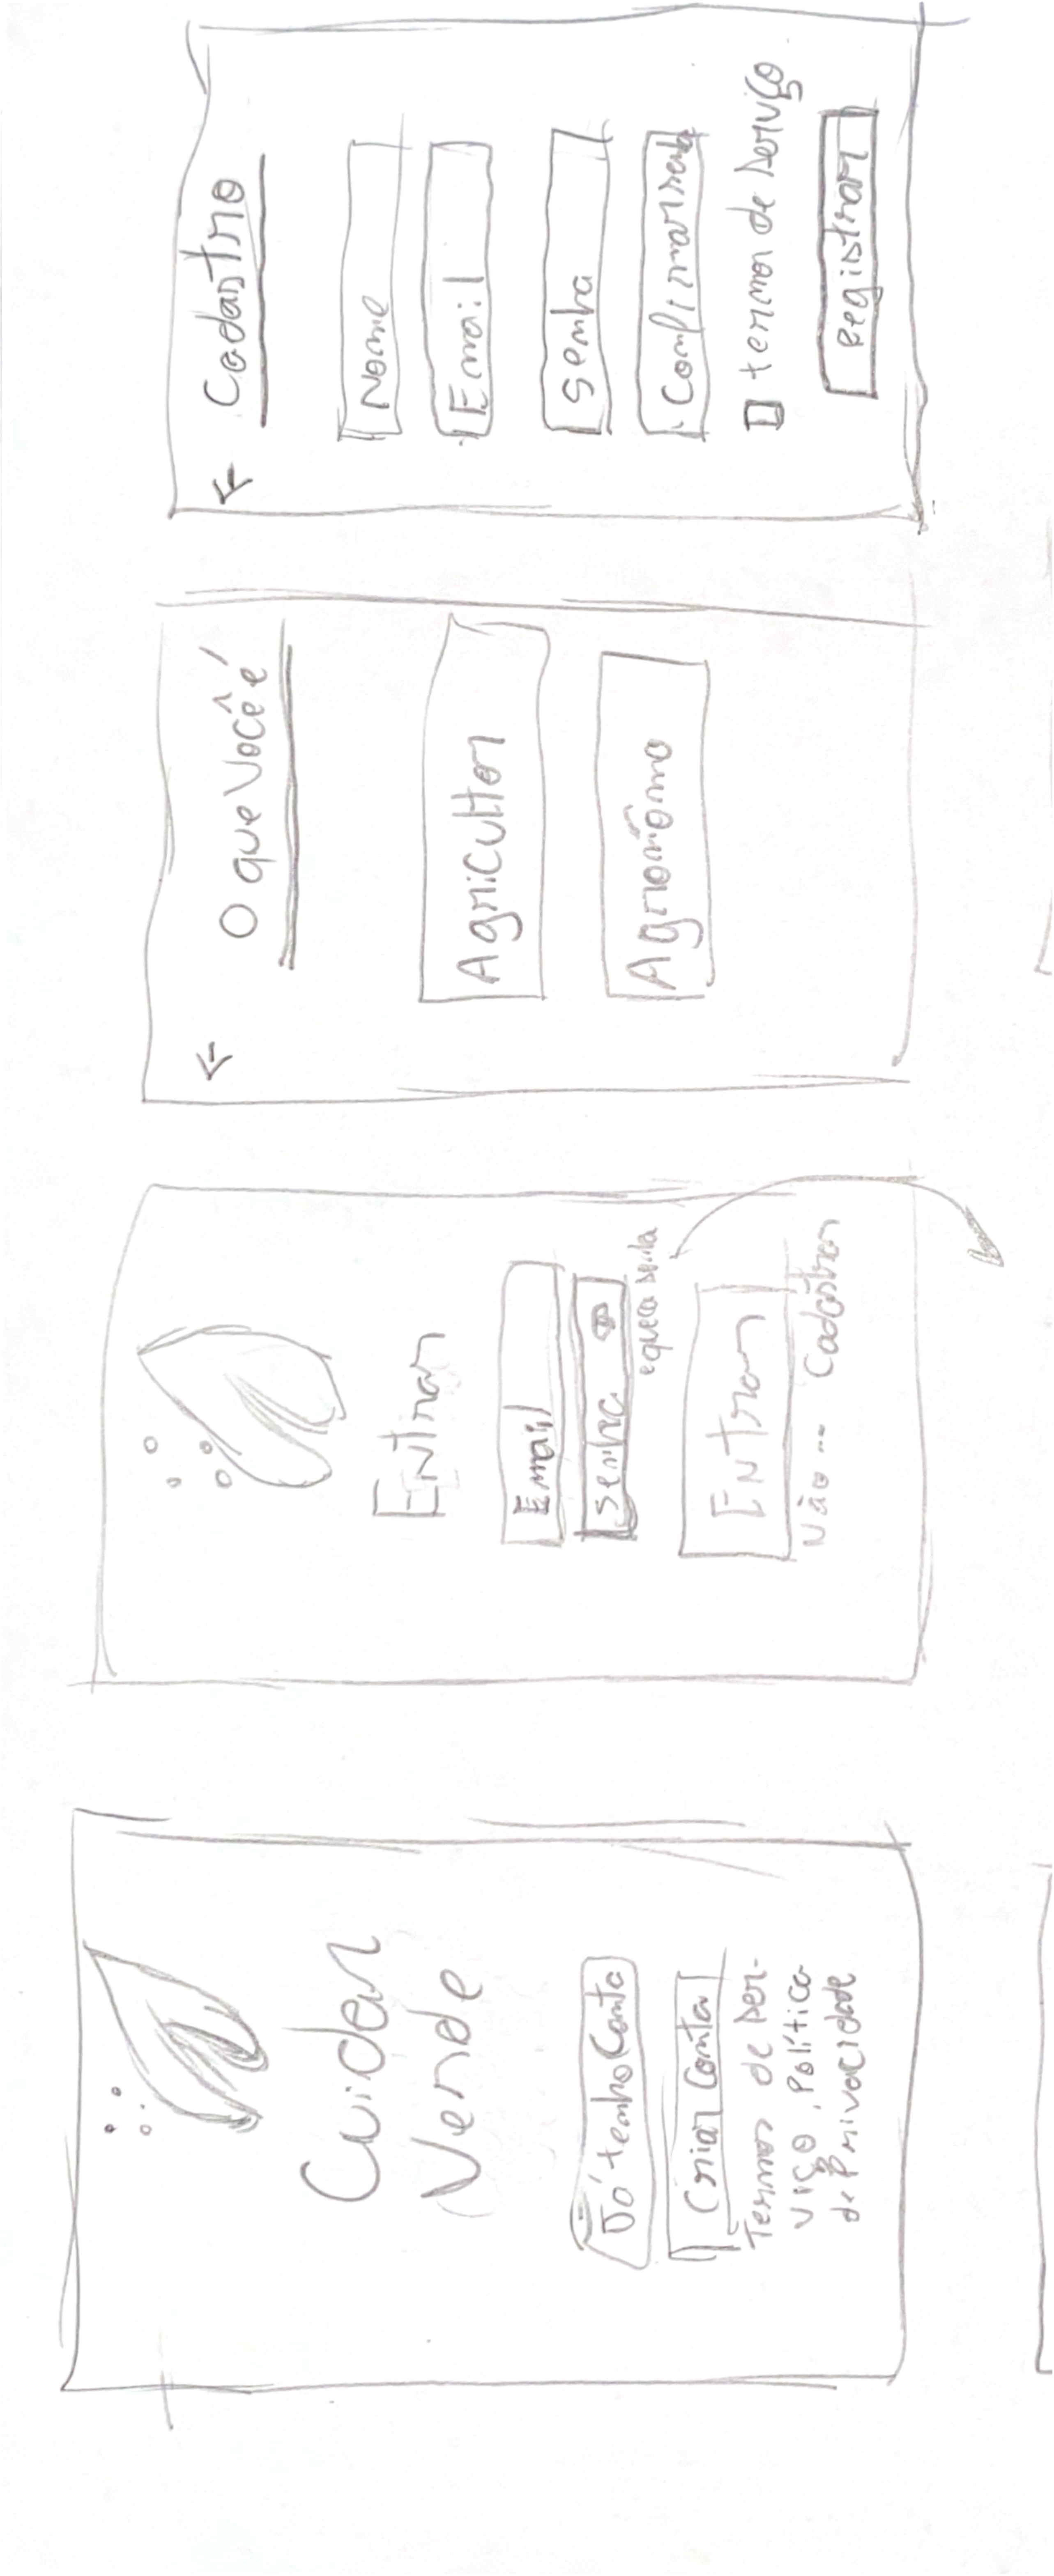 Cuidar
Vende
Já tenho Conta
Criar Conta
Termos de Ser-
viço, Política
de Privacidade
Entrar
Email
senha
equeca senha
Entrar
Não -- Cadastrar
O que Você é
Agricultor
Agronômo
Cadastro
Nome
Email
senha
Confirmar senha
termos de serviço
Registrar